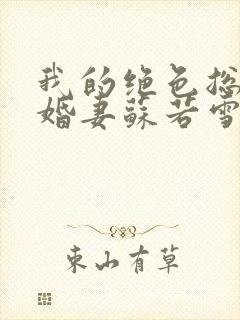 我的绝色总
婚妻苏若雪
东山有草